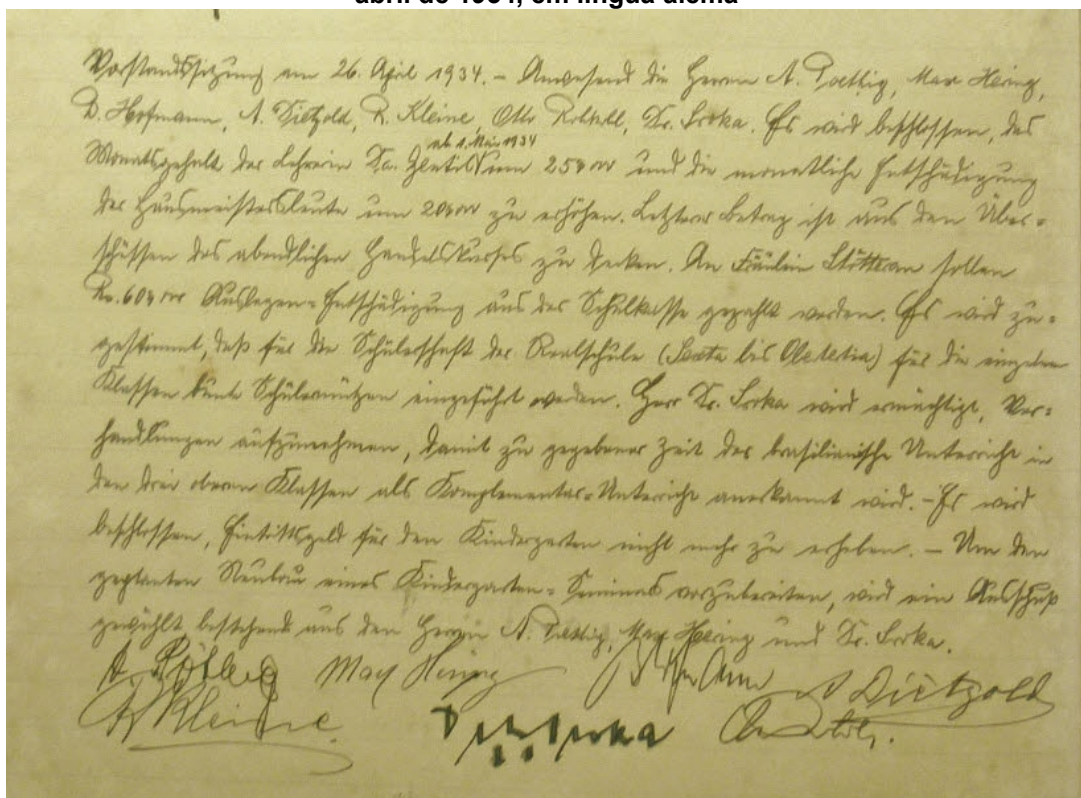 abril de 1934, em língua alemã
Vorstandssitzung am 26. April 1934. – Anwesend die Herren A. Poettig, Max Hering,
D. Hofmann, A. Dietzold, R. Kleine, Otto Dr. Sroka. Es wird beschlossen, das
ab 1. Mai 1934
Monatsgehalt der Lehrerin um und die monatliche Entschädigung
der Hausmeistersleute um zu erhöhen. Letzterer Betrag ist aus den Über=
schüssen des abendlichen Handelskurses zu decken. An Fräulein sollen
Auslagen=Entschädigung aus der Schulkasse gezahlt werden. Es wird zu=
gestimmt, daß für die Schülerschaft der Realschule (Sexta bis Obertertia) für die einzelnen
Klassen bunte Schülermützen eingeführt werden. Herr Dr. Sroka wird ermächtigt, Ver=
handlungen aufzunehmen, damit zu gegebener Zeit der brasilianische Unterricht in
den drei oberen Klassen als Komplementar=Unterricht anerkannt wird. – Es wird
beschlossen, Eintrittsgeld für den Kindergarten nicht mehr zu erheben. – Um den
geplanten Neubau eines Kindergarten=Seminars vorzubereiten, wird ein Ausschuß
gewählt bestehend aus den Herren A. Poettig, Max Hering und Dr. Sroka.
Max Hering A Dietzold
R Kleine. Dr Sroka